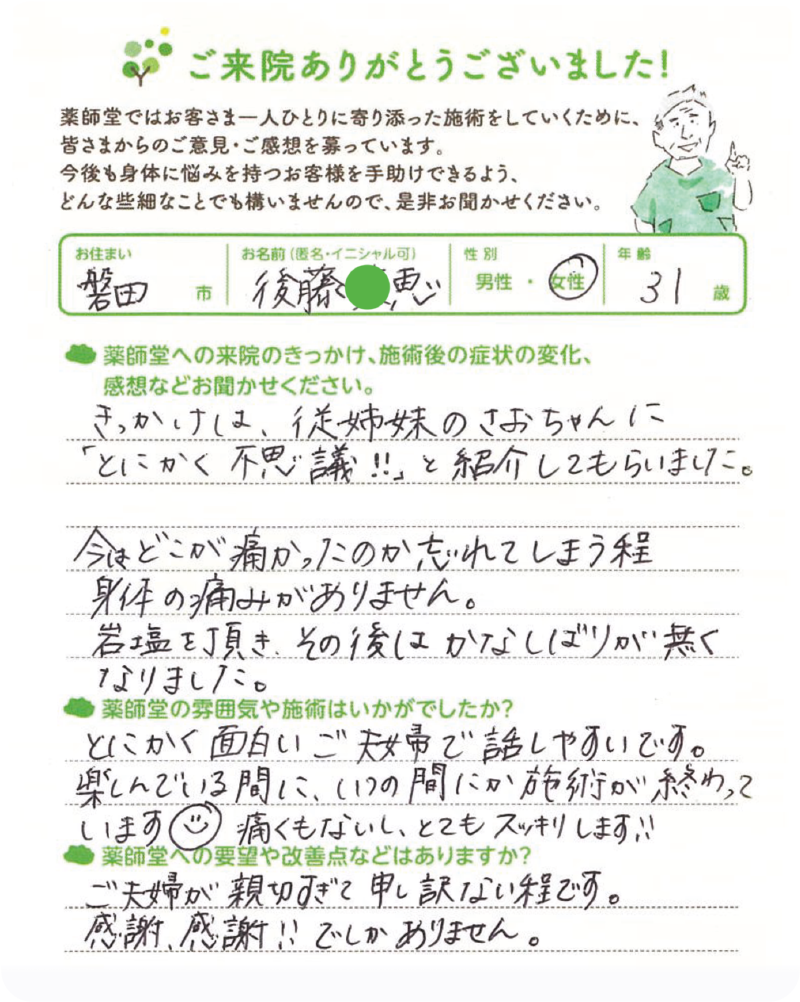 ご来院ありがとうございました!
薬師堂ではお客さま一人ひとりに寄り添った施術をしていくために、
皆さまからのご意見・ご感想を募っています。
今後も身体に悩みを持つお客様を手助けできるよう、
どんな些細なことでも構いませんので、是非お聞かせください。
お住まい お名前(匿名・イニシャル可) 性別 年齢
磐田 市 後藤 恵 男性 ・ 女性 31 歳
薬師堂への来院のきっかけ、施術後の症状の変化、
感想などお聞かせください。
きっかけは、従姉妹のさおちゃんに
「とにかく不思議!!」と紹介してもらいました。
今はどこが痛かったのか忘れてしまう程
身体の痛みがありません。
岩塩を頂き、その後はかなしばりが無く
なりました。
薬師堂の雰囲気や施術はいかがでしたか?
とにかく面白いご夫婦で話しやすいです。
楽しんでいる間に、いつの間にか施術が終わって
います 痛くもないし、とてもスッキリします!!
薬師堂への要望や改善点などはありますか?
ご夫婦が親切すぎて申し訳ない程です。
感謝、感謝!!でしかありません。